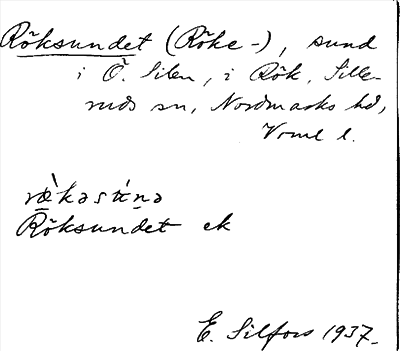 Röksundet (Röke-), sund
i Ö. Silen, i Rök, Sille-
ruds sn, Nordmarks hd,
Verml l.
ræ̀kəsu̇́nə
Röksundet ek
E. Silfors 1937.